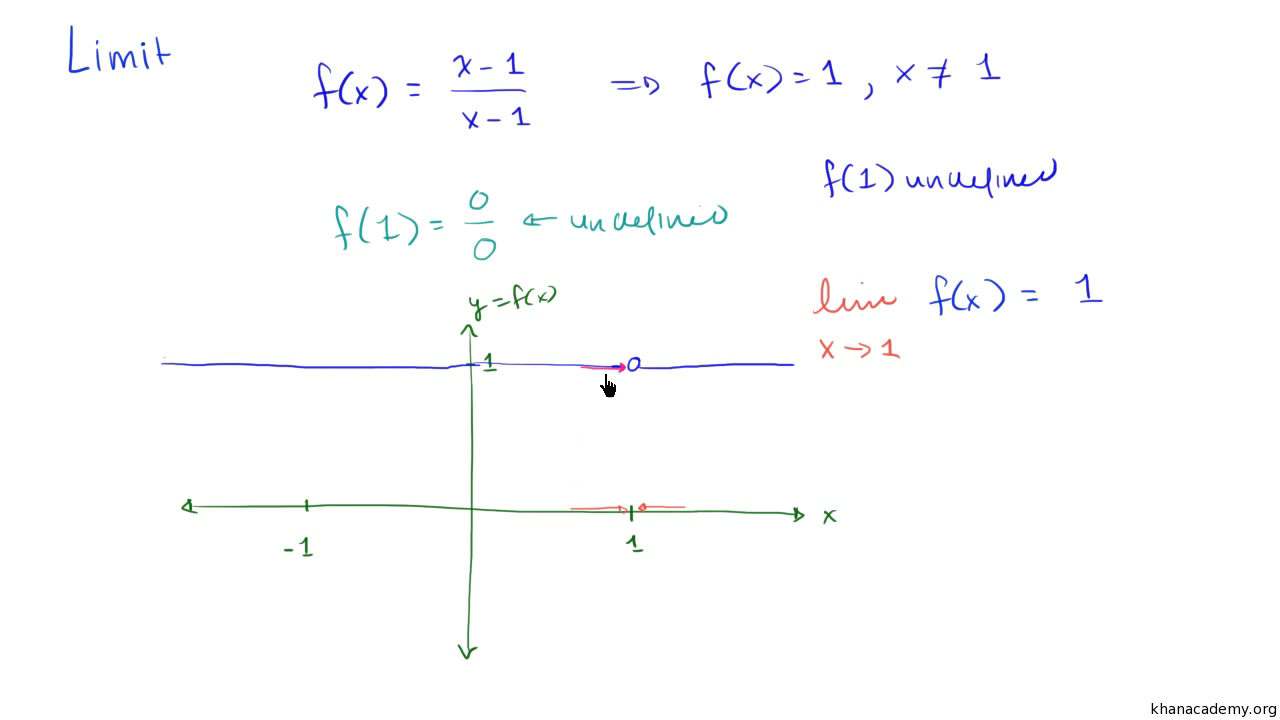 Limit
f(x) = x-1 / x-1 ⇒ f(x) = 1 , x ≠ 1
f(1) undefined
f(1) = 0 / 0 ← undefined
y = f(x)
lim f(x) = 1
x → 1
1
x
-1
1
khanacademy.org